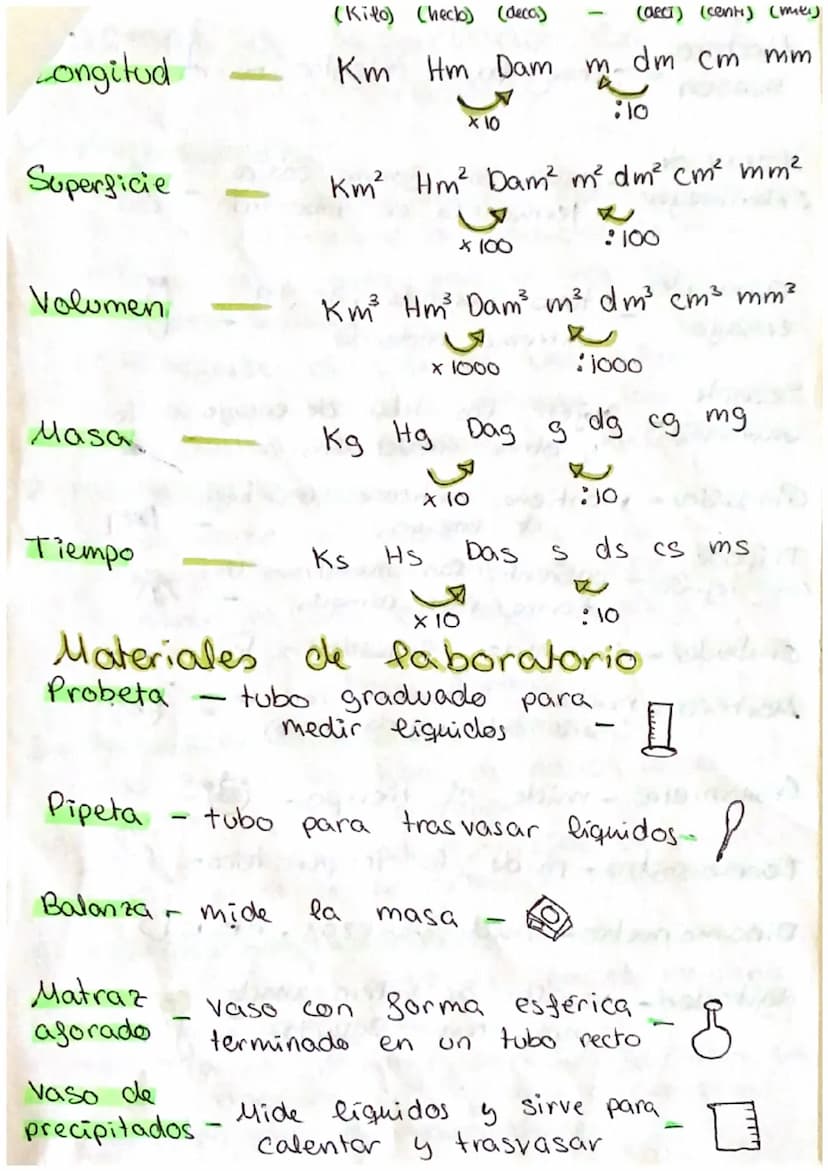 (Kilo) (hecto) (deca) - (deci) (centi) (mili)
Longitud — Km Hm Dam m dm cm mm
x10 :10
Superficie — Km² Hm² Dam² m² dm² cm² mm²
x100 :100
Volumen — Km³ Hm³ Dam³ m³ dm³ cm³ mm²
x1000 :1000
Masa — Kg Hg Dag g dg cg mg
x10 :10
Tiempo — Ks Hs Das s ds cs ms
x10 :10
Materiales de laboratorio
Probeta — tubo graduado para
medir líquidos -
Pipeta - tubo para trasvasar líquidos -
Balanza - mide la masa -
Matraz
aforado - vaso con forma esférica -
terminado en un tubo recto
Vaso de
precipitados - Mide líquidos y sirve para -
calentar y trasvasar